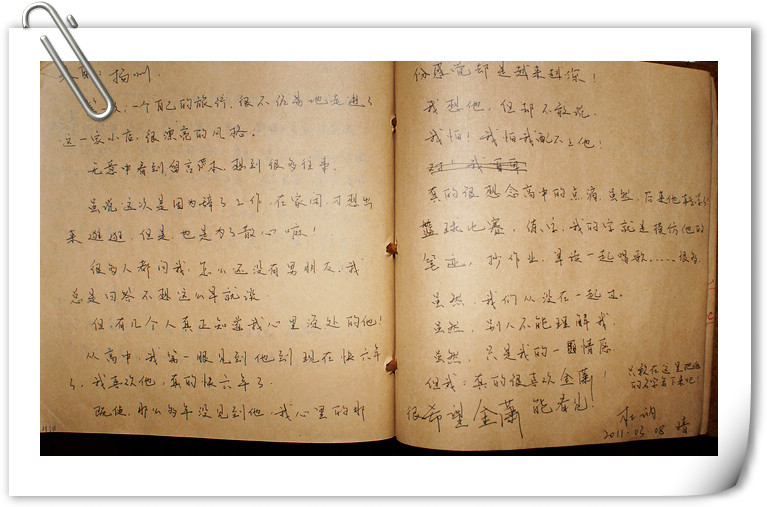 扬州.
一次,一个自己的旅行.很不经意地走进了
这一家小店.很漂亮的风格.
无意中看到留言本.想到很多往事.
虽说这次是因为辞了工作.在家闲.可想出
来逛逛.但是.也是为了散心嘛!
很多人都问我.怎么还没有男朋友.我
总是回答不想这么早就谈.
但.有几个人真正知道我心里深处的他!
从高中.我第一眼见到他到现在快六年
了.我喜欢他,真的快六年了.
既使.那么多年没见到他.我心里的那
份感觉却是越来越深!
我想他,但却不敢说.
我怕!我怕我配不上他!
真的很想念高中的点滴.虽然,
篮球比赛,值日,我的字就是模仿他的
笔迹,抄作业.一起唱歌……很多.
虽然,我们从没在一起过.
虽然,别人不能理解我.
虽然,只是我的一厢情愿
但我:真的很喜欢金萧!
只敢在这里把他
的名字写下来吧!
很希望金萧能看见!
2011.03.08 晴